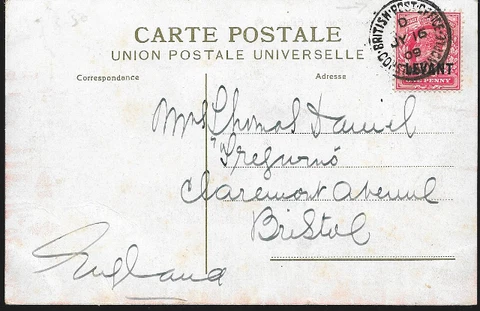 CARTE POSTALE
UNION POSTALE UNIVERSELLE
Correspondance
Adresse
BRITISH·POST·OFFICE
D
JY 16
09
LEVANT
PENNY
Mrs Thomas Daniel
Claremont Avenue
Bristol
England